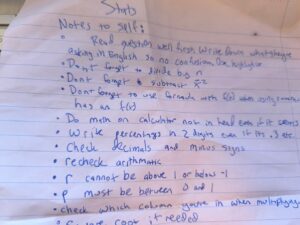 Stats
Notes to self:
• Read question well first write down what they're
asking in English so no confusion. Use highlighter
• Don't forget to divide by n
• Dont forget to subtract x̄²
• Dont forget to use formula with f(x) when using
has an f(x)
• Do math on calculator not in head even if it seems
• Write percentages in 2 digits even if its .3 etc.
• Check decimals and minus signs
• recheck arithmatic
• r cannot be above 1 or below -1
• p must be between 0 and 1
• check which column you're in when multiplying
root if needed